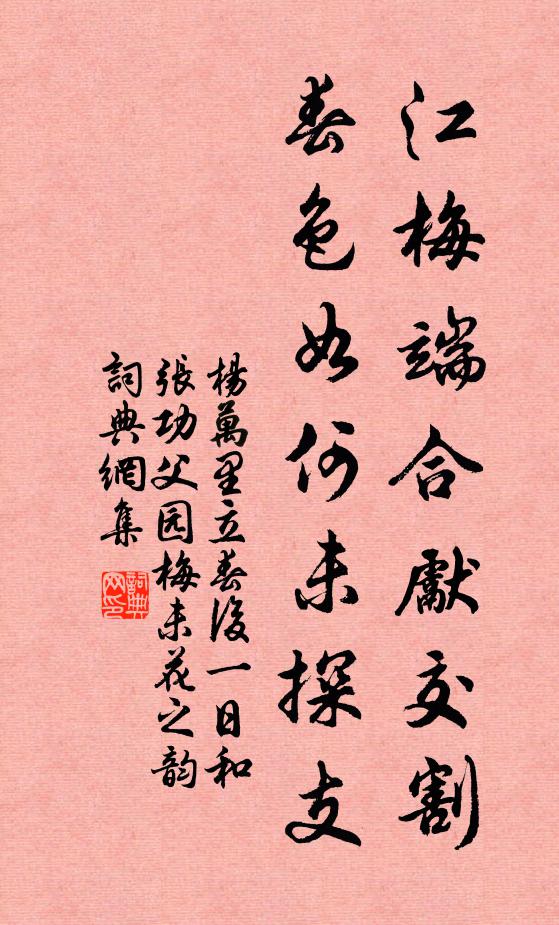 江梅端合獻交割
春色如何未探支
楊萬里立春後一日和
張功父园梅未花之韵
詞典網集
詞典
网印